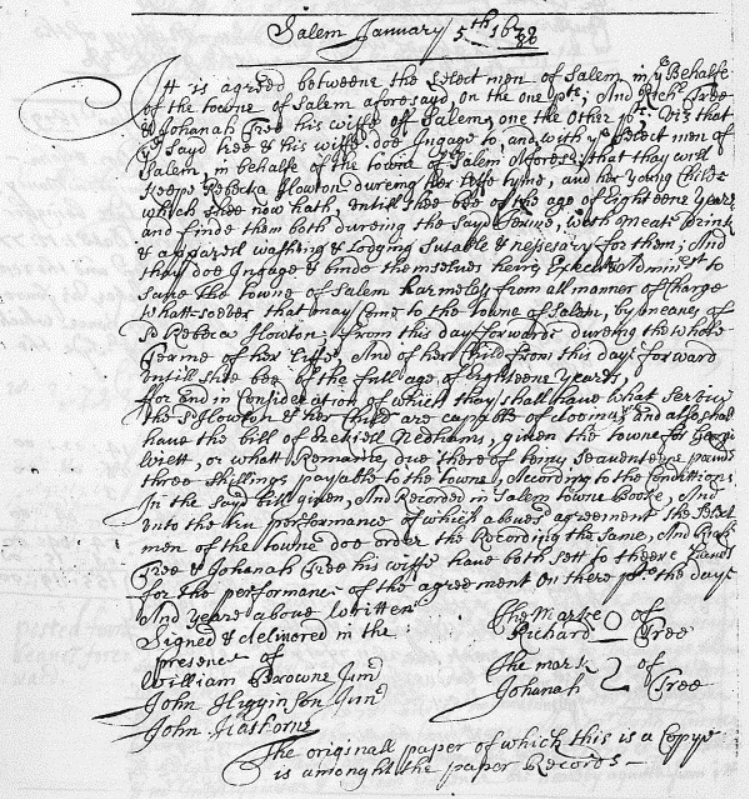 Salem January 5th 16 79/80
It is agreed betweene the select men of Salem in ye Behalfe
of the towne of Salem aforesayd, on the one pte; And Richd Tree
& Johanah Tree his wiffe off Salem, one the Other pt: Viz that
ye Sayd tree & his wiffe doe Ingage to, and with ye Select men of
Salem, in behalfe of the towne of Salem Aforesd; that thay will
Keepe Rebecka Howton dureing her liffe tyme, and her Young Childe
which shee now hath, untill shee bee of the age of Eighteene Years
and finde them both dureing the Sayd terme, with meate Drink
& apparell washing & Lodging sutable & nessesary for them; And
thay doe Ingage & binde themselves heirs Execut & Administ to
save the towne of Salem harmeless from all manner of Charge
Whatt-soever that may Come to the towne of Salem, by meanes of
Sd Rebeca Howton, from this day forwards dureing the whole
Terme of her liffe, And of her Child from this day forward
untill shee bee of the full age of Eighteene Years,
for and in Consideration of which thay shall have what servis
the Sd Howton & her Child are capable of dooing, and also shall
have the bill of Ezekiell Nedhams, given the towne for
or whatt Remaines due there of being seaventeene pounds
three shillings payable to the towne, According to the Conditions
In the sayd bill given, And Recorded in Salem towne Booke, And
unto the tru performance of which aboved agreement the Select
men of the towne doe order the Recording the same, And Richd
Tree & Johanah Tree his wiffe have both sett to theere hands
for the performance of the agreement on there pte the day
And yeare above written
Signed & delivered in the The Marke O of
presence of Richard Tree
William Browne Junr The mark 2 of
John Higginson Junr Johanah Tree
John Hathorne
The originall paper of which this is a Copye
is amonght the paper Records —